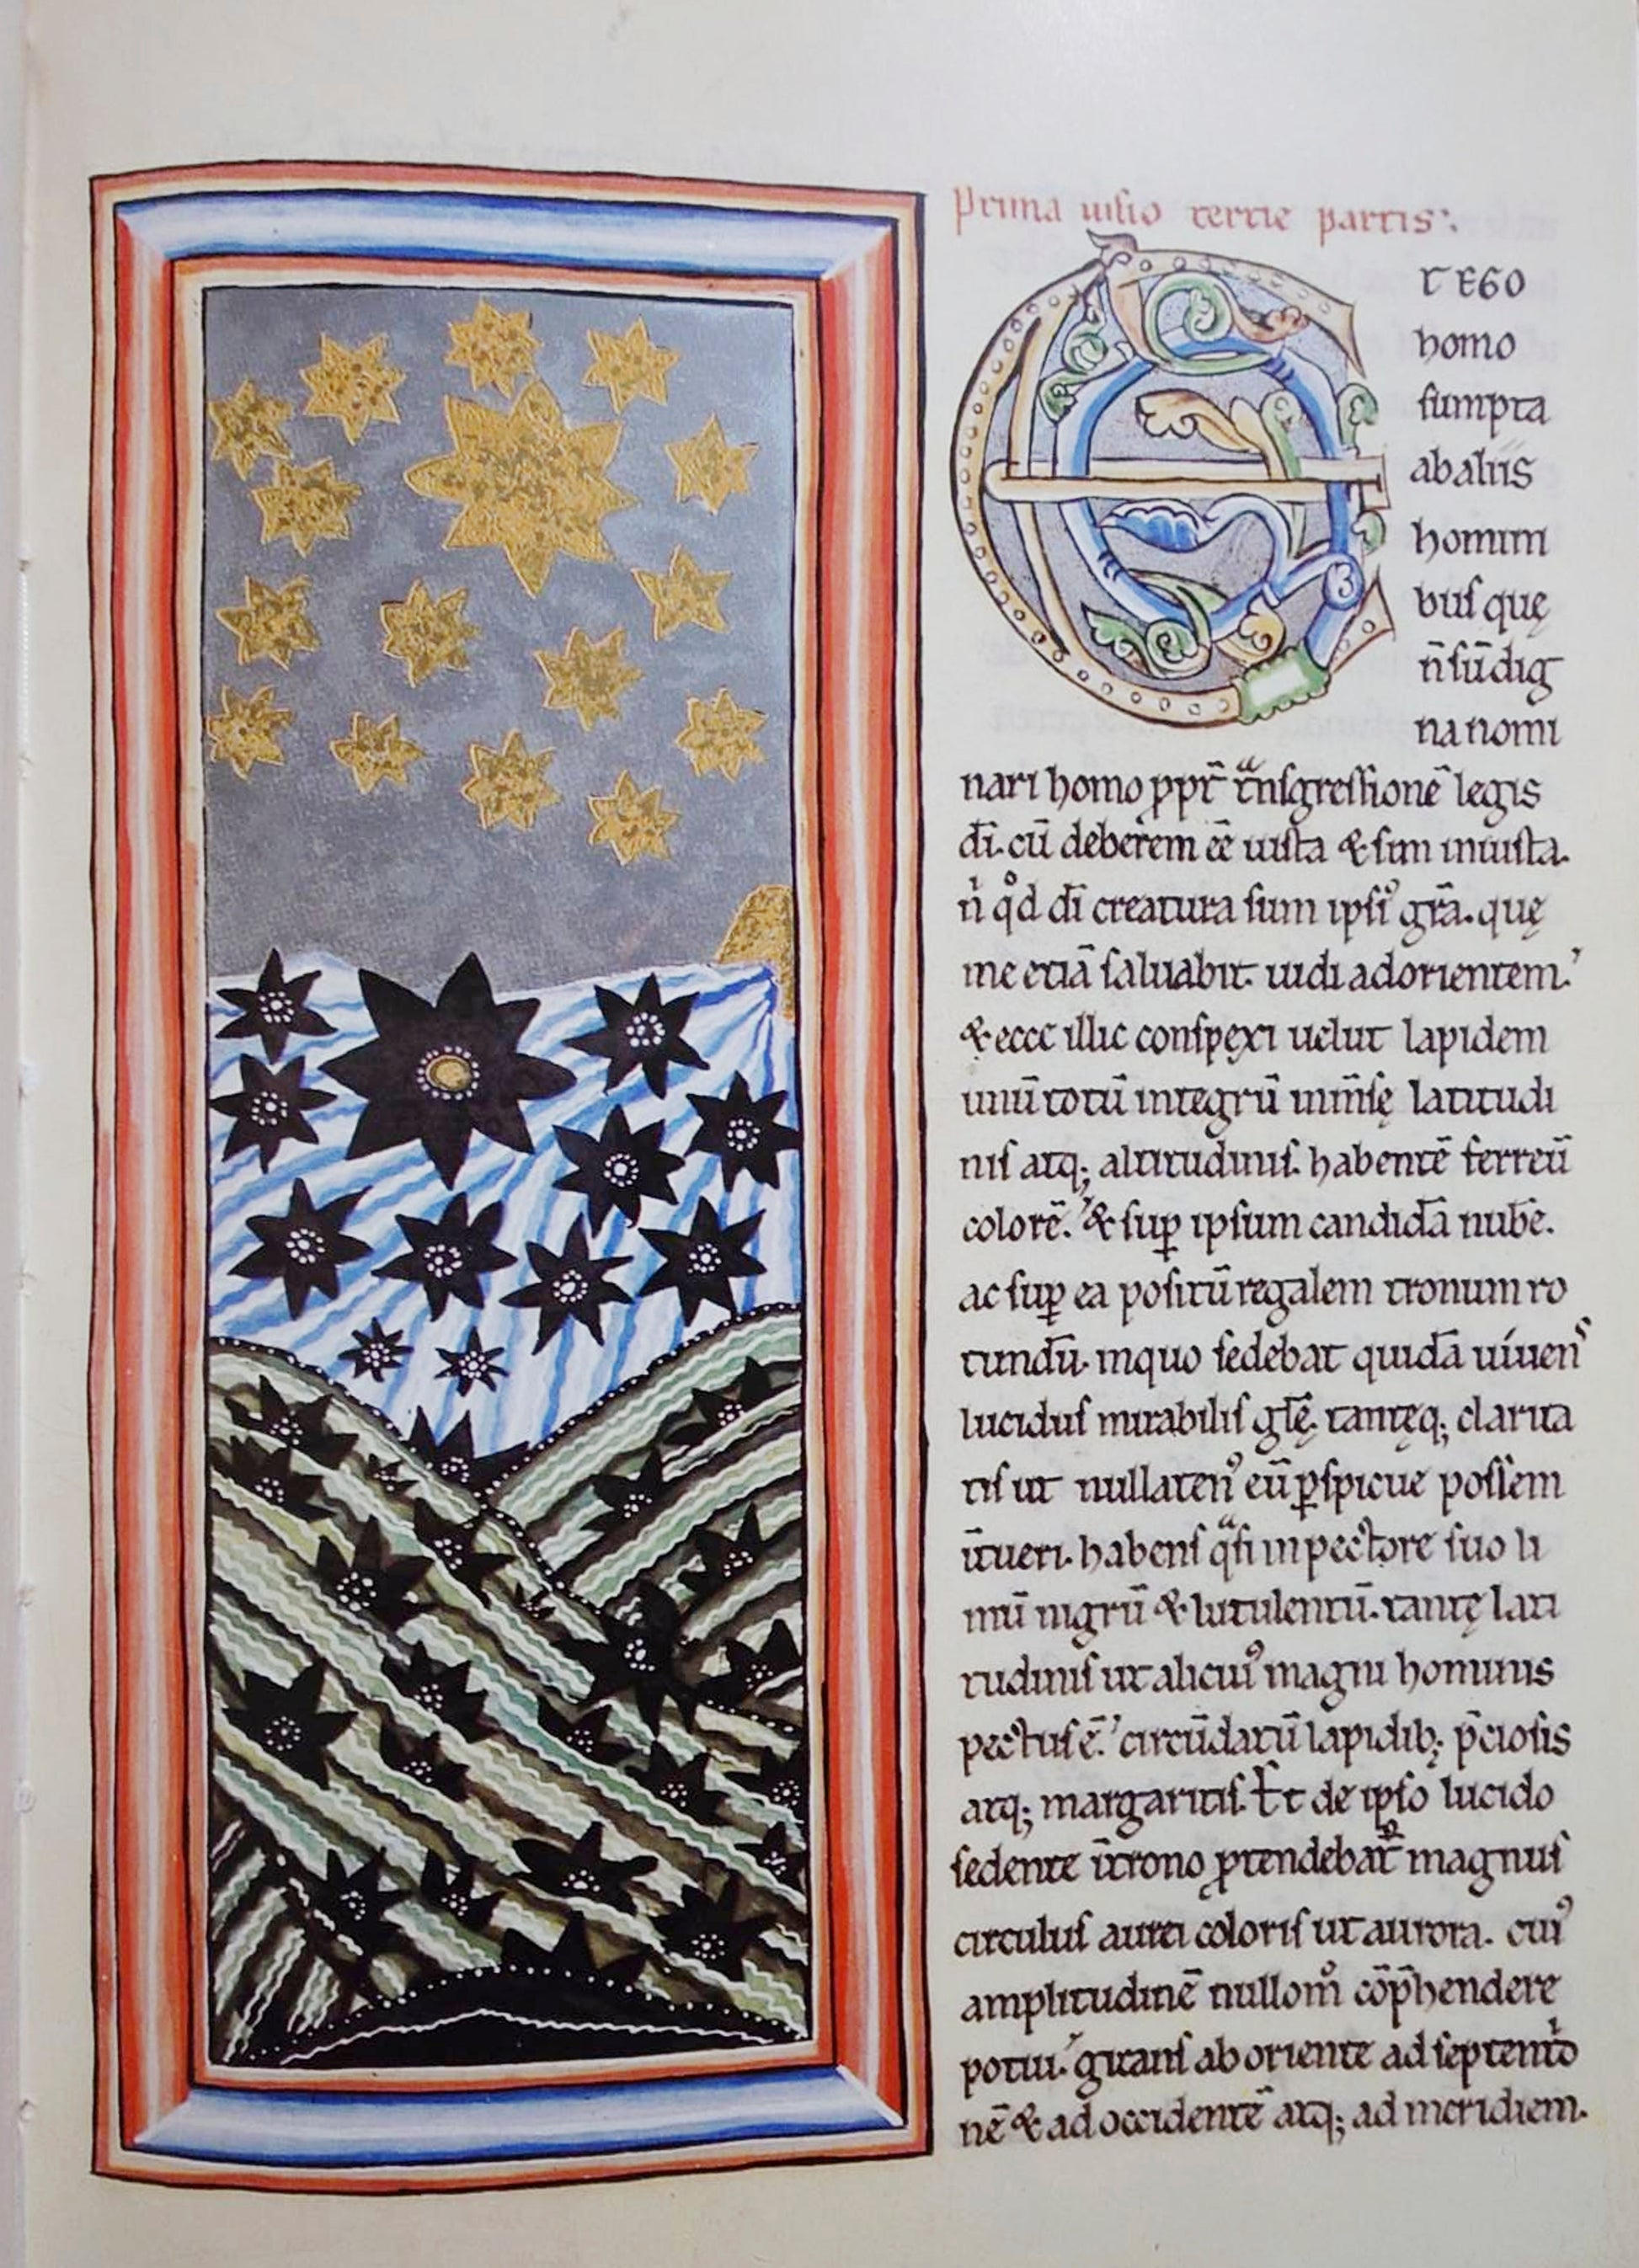 Prima uisio tercie partis:.
ET EGO
homo
sumpta
ab aliis
homini
bus quę
n̄ sū dig
na nomi
nari homo ppt̄ tͣnsgressionē legis
dī. cū deberem eē iusta & sim iniusta.
ń qͦd dī creatura sum ipsiꝰ grā. quę
me etiā saluabit. uidi ad orientem.
& ecce illic conspexi uelut lapidem
unū totū integrū inm̄sę latitudi
nis atq; altitudinis. habentē ferreū
colorē. & suꝑ ipsum candidā nubē.
ac suꝑ eā positū regalem tronum ro
tundū. in quo sedebat quidā uiuens
lucidus mirabilis glę̄. tantęq; clarita
tis ut nullatenꝰ eū ꝑspicue possem
ītueri. habens qͣsi in pectore suo li
mū nigrū & lutulentū. tantę lati
tudinis ut alicuiꝰ magni hominis
pectus ē. circūdatū lapidib; p̄ciosis
atq; margaritis. Et de ipso lucido
sedente ī trono ꝓtendebat̄ magnus
circulus aurei coloris ut aurora. cuiꝰ
amplitudinē nullom̊ cōp̄hendere
potui. girans ab oriente ad septentͦ
nē & ad occidentē atq; ad meridiem.